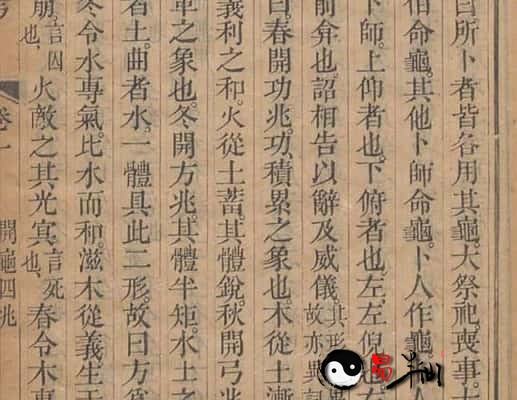 曰所卜者皆各用其龜大祭祀喪事
相命龜其他卜師命龜卜人作龜
卜師上仰者也下俯者也左左倪也右
前弇也詔相告以辭及威儀其形
故亦
曰春開功兆功積累之象也木從土漸
義利之和火從土蓄其體銳秋開弓兆
車之象也冬開方兆其體半矩水土之
者土曲者水一體具此二形故曰方
冬令水專氣比水而和滋木從義生于
崩也言囚火敵之其光寘也言死春令木專
卷一 開龜四兆
易